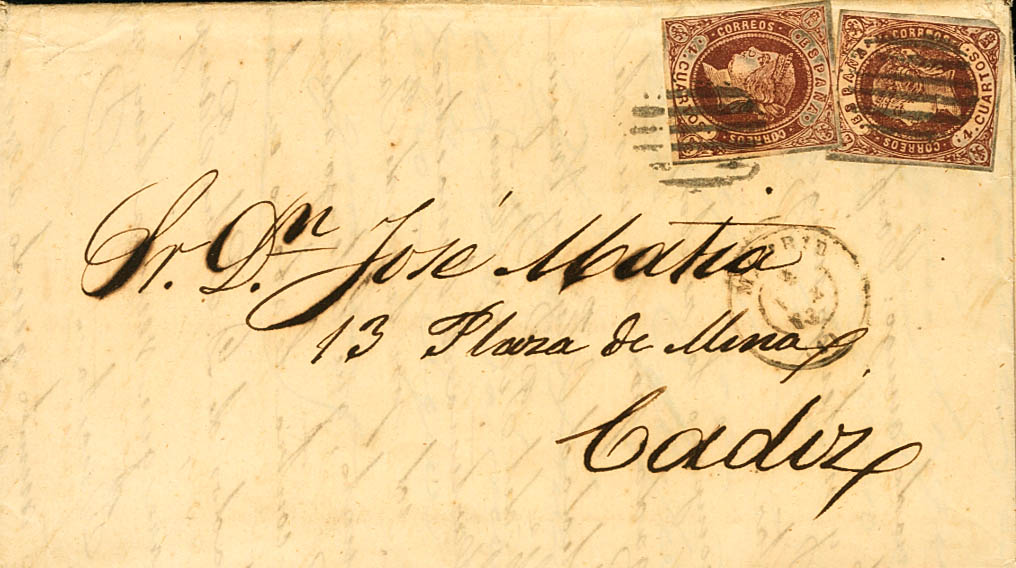 CORREOS ESPAÑA CORREOS 4 CUARTOS
CORREOS ESPAÑA CORREOS 4 CUARTOS
Sr. Dn José Matia
MADRID
63
13 Plaza de Mina,
Cadiz